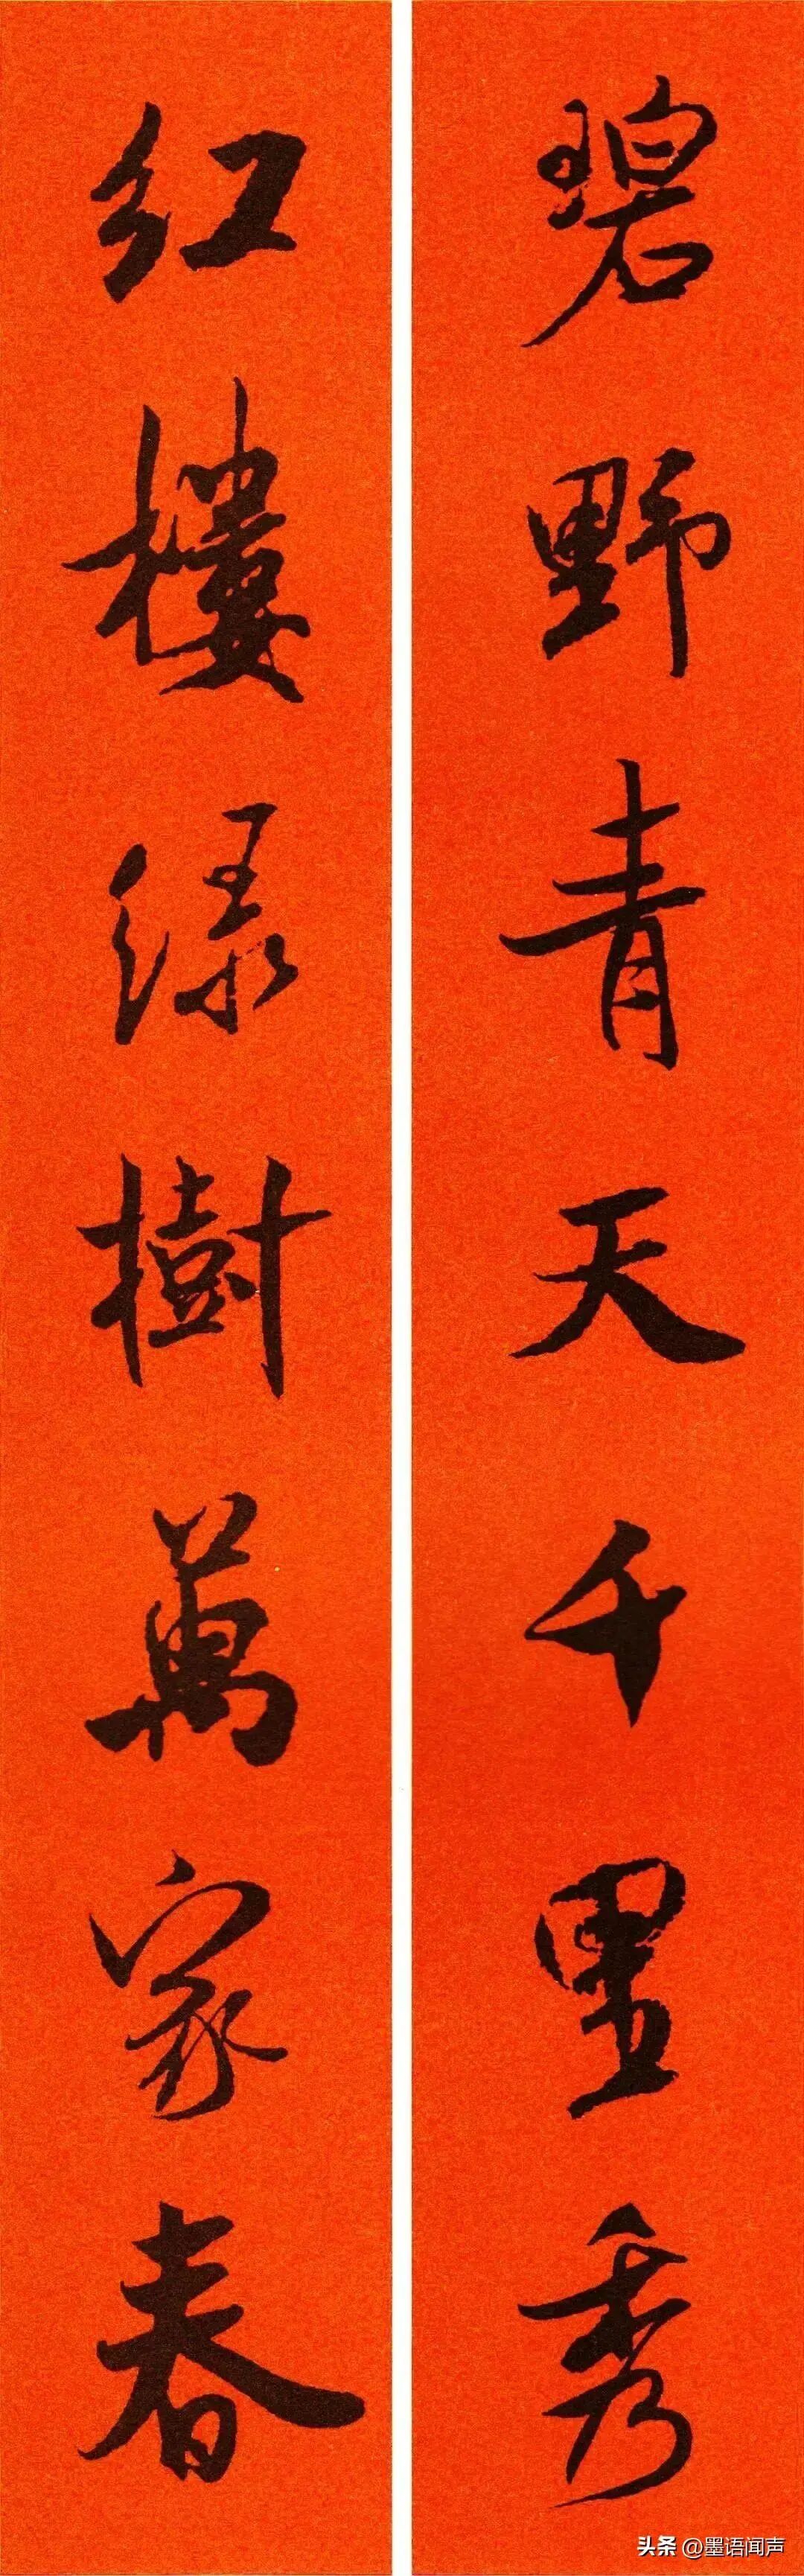 碧野青天千里秀
红樓绿樹萬家春
头条 @墨语闻声